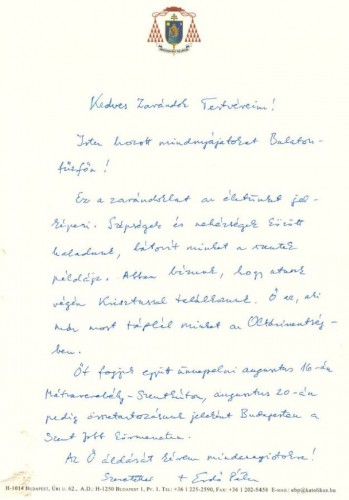 Kedves Zarándok Testvéreim!
Isten hozott mindnyájatokat Balaton-
fűzfőn!
Ez a zarándoklat az életünket jel-
képezi. Szépségek és nehézségek között
haladunk, bátorít minket a szentek
példája. Abban bízunk, hogy utunk
végén Krisztussal találkozunk. Ő az, aki
már most táplál minket az Oltáriszentség-
ben.
Őt fogjuk együtt ünnepelni augusztus 16-án
Mátraverebély-Szentkúton, augusztus 20-án
pedig összetartozásunk jeleként Budapesten a
Szent Jobb Körmeneten.
Az Ő áldását kérem mindegyiktekre!
Szeretettel + Erdő Péter
H-1014 BUDAPEST, ÚRI U. 62., A.D.: H-1250 BUDAPEST 1, PF. 1. TEL: +36 1 225-2590, FAX: +36 1 202-5458 E-MAIL: eby@katolikus.hu